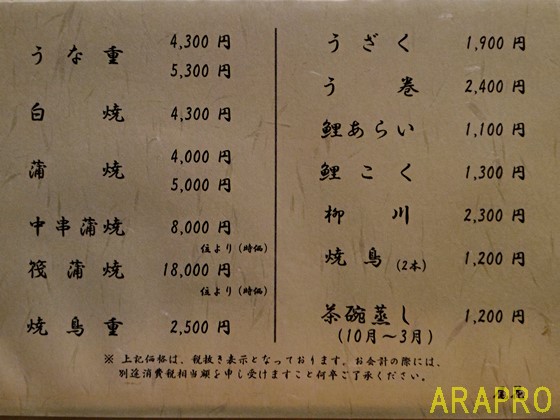 うな重 4,300 円
5,300 円
白焼 4,300 円
蒲焼 4,000 円
5,000 円
中串蒲焼 8,000 円
位より(時価)
筏蒲焼 18,000 円
位より(時価)
焼鳥重 2,500 円
うざく 1,900 円
う巻 2,400 円
鯉あらい 1,100 円
鯉こく 1,300 円
柳川 2,300 円
焼鳥(2本) 1,200 円
茶碗蒸し 1,200 円
(10月～3月)
※ 上記価格は、税抜き表示となっております。お会計の際には、
別途消費税相当額を申し受けますこと何卒ご了承ください。
ARAPRO